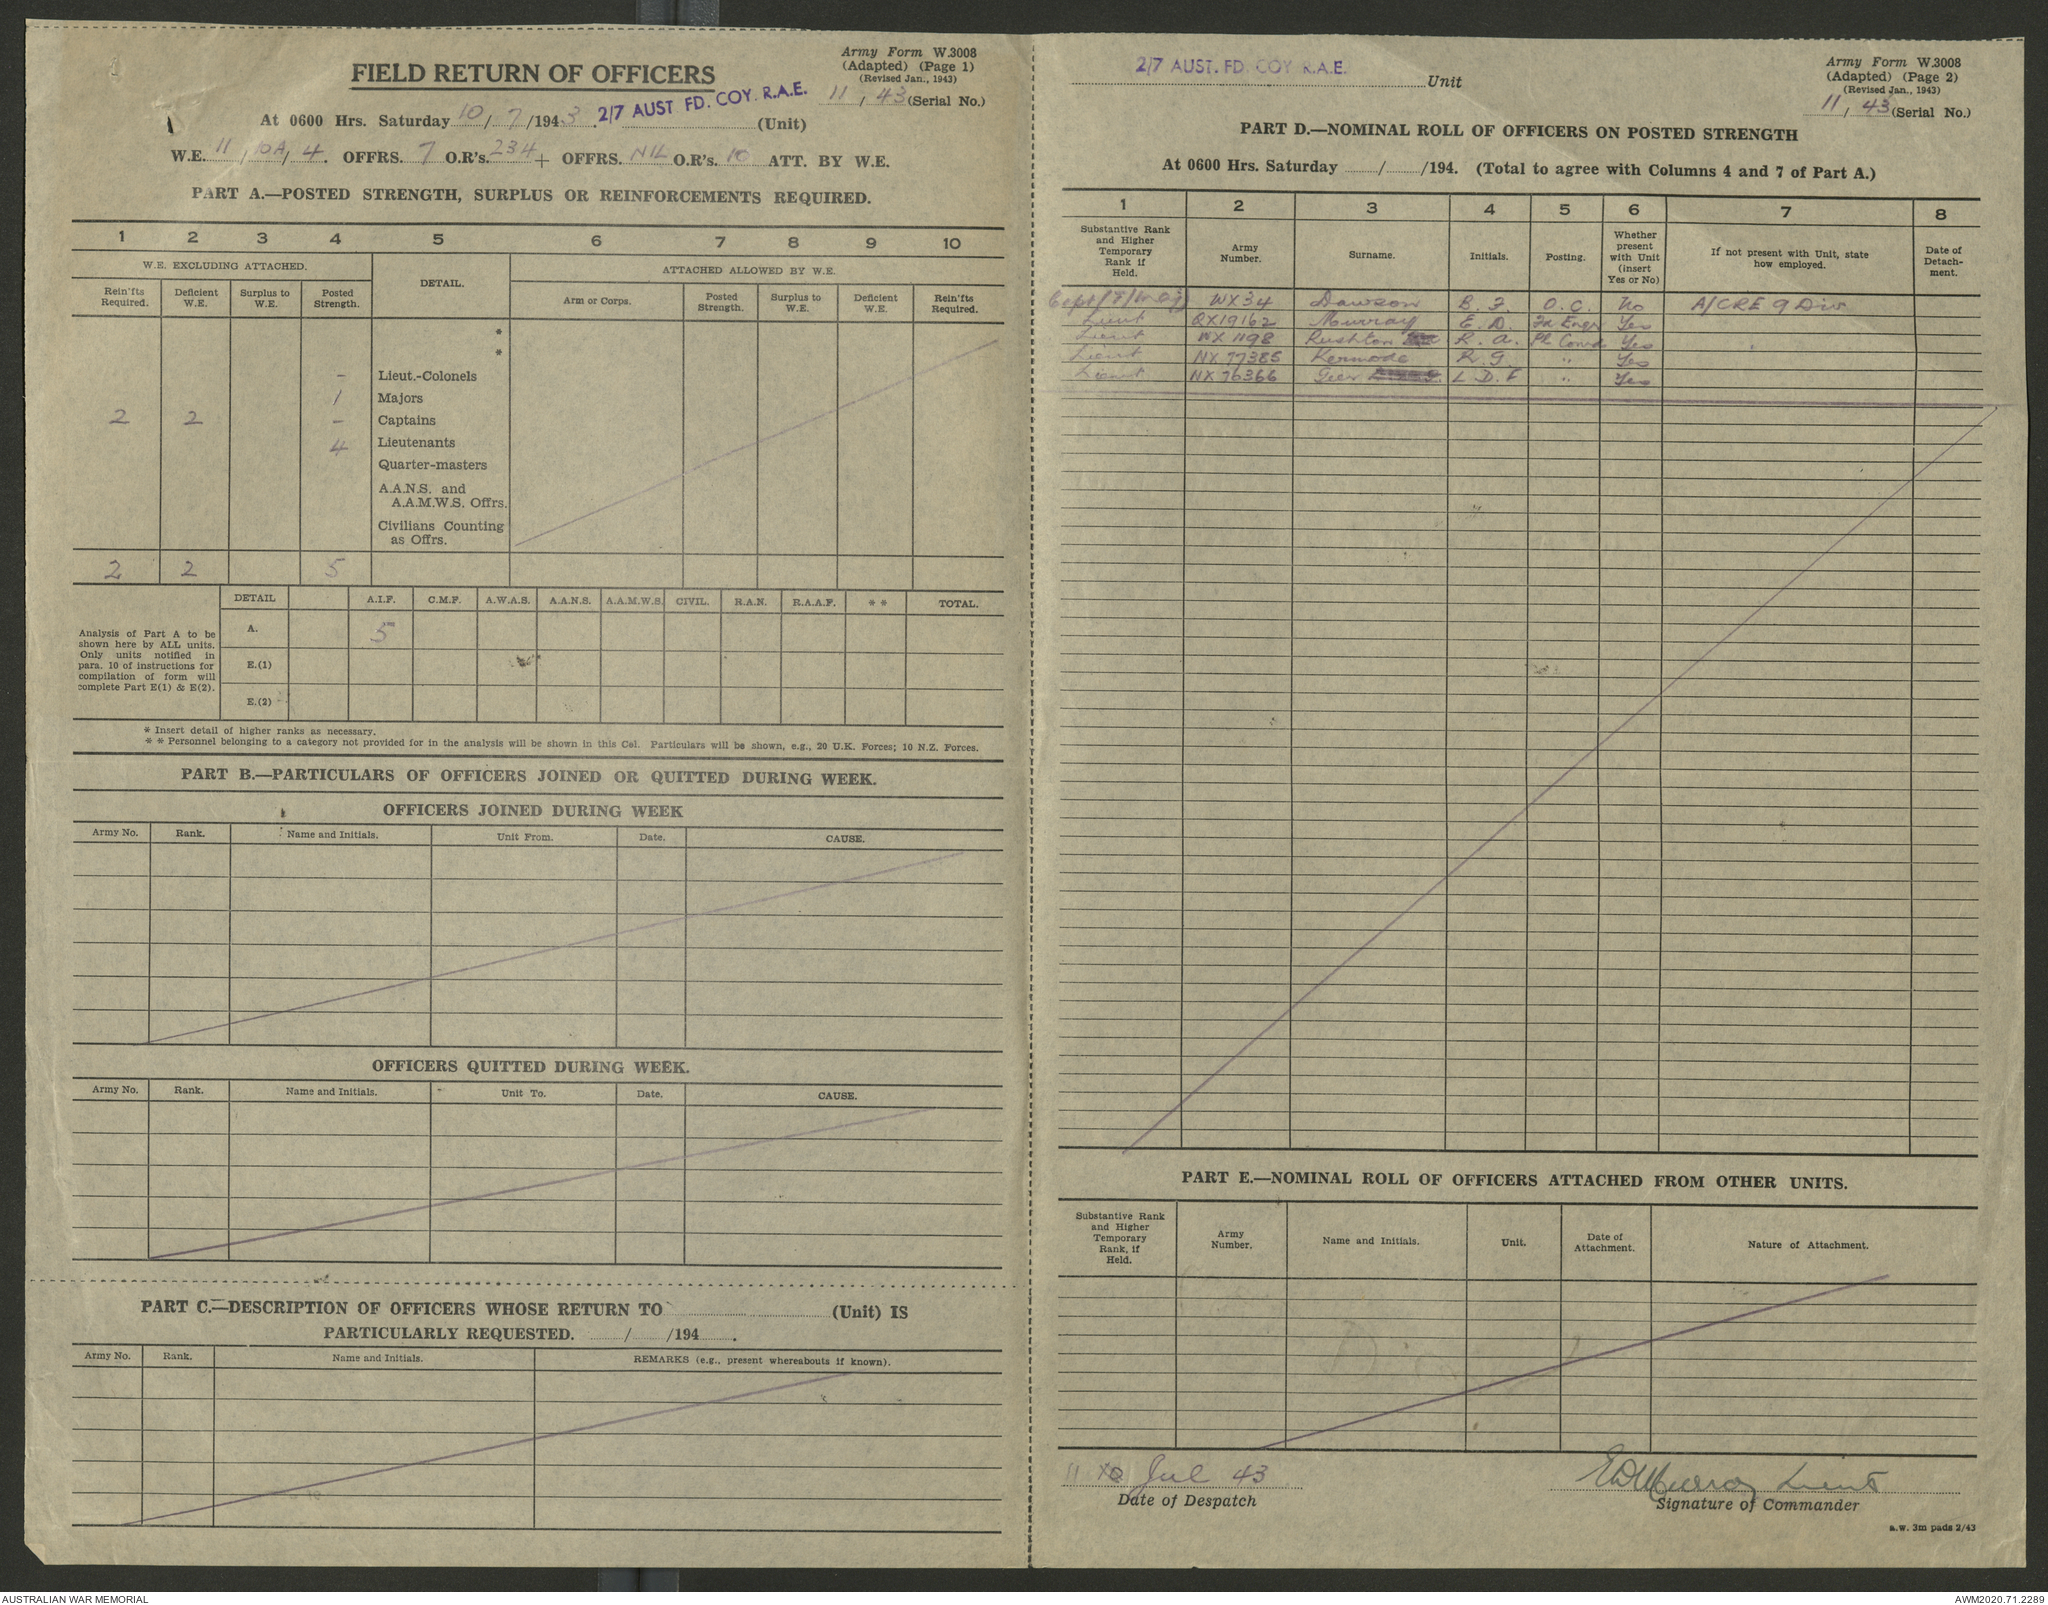 FIELD RETURN OF OFFICERS
Army Form W.3008
(Adapted) (Page 1)
(Revised Jan., 1943)
11, 43 (Serial No.)
At 0600 Hrs. Saturday 10/7/1943. 2/7 AUST FD. COY. R.A.E. (Unit)
W.E. 11, 10A, 4. OFFRS. 7 O.R's. 234 + OFFRS. NIL O.R's. 10 ATT. BY W.E.
PART A.—POSTED STRENGTH, SURPLUS OR REINFORCEMENTS REQUIRED.
1 2 3 4 5 6 7 8 9 10
W.E. EXCLUDING ATTACHED. DETAIL. ATTACHED ALLOWED BY W.E.
Rein'fts Required. Deficient W.E. Surplus to W.E. Posted Strength. Arm or Corps. Posted Strength. Surplus to W.E. Deficient W.E. Rein'fts Required.
*
*
– Lieut.-Colonels
1 Majors
2 2 – Captains
4 Lieutenants
Quarter-masters
A.A.N.S. and
A.A.M.W.S. Offrs.
Civilians Counting
as Offrs.
2 2 5
DETAIL A.I.F. C.M.F. A.W.A.S. A.A.N.S. A.A.M.W.S. CIVIL. R.A.N. R.A.A.F. * * TOTAL.
Analysis of Part A to be
shown here by ALL units.
Only units notified in
para. 10 of instructions for
compilation of form will
complete Part E(1) & E(2).
A. 5
E.(1)
E.(2)
* Insert detail of higher ranks as necessary.
* * Personnel belonging to a category not provided for in the analysis will be shown in this Col. Particulars will be shown, e.g., 20 U.K. Forces; 10 N.Z. Forces.
PART B.—PARTICULARS OF OFFICERS JOINED OR QUITTED DURING WEEK.
OFFICERS JOINED DURING WEEK
Army No. Rank. Name and Initials. Unit From. Date. CAUSE.
OFFICERS QUITTED DURING WEEK.
Army No. Rank. Name and Initials. Unit To. Date. CAUSE.
PART C.—DESCRIPTION OF OFFICERS WHOSE RETURN TO (Unit) IS
PARTICULARLY REQUESTED. / /194 .
Army No. Rank. Name and Initials. REMARKS (e.g., present whereabouts if known).
2/7 AUST. FD. COY R.A.E. Unit
Army Form W.3008
(Adapted) (Page 2)
(Revised Jan., 1943)
11, 43 (Serial No.)
PART D.—NOMINAL ROLL OF OFFICERS ON POSTED STRENGTH
At 0600 Hrs. Saturday / /194. (Total to agree with Columns 4 and 7 of Part A.)
1 2 3 4 5 6 7 8
Substantive Rank and Higher Temporary Rank if Held. Army Number. Surname. Initials. Posting. Whether present with Unit (insert Yes or No) If not present with Unit, state how employed. Date of Detachment.
Capt (T/Maj) WX34 Dawson B. F. O.C. No A/CRE 9 Div
Lieut QX19162 Murray E. D. Fd Engr Yes
Lieut WX 1198 Rushton R. A. Pl Comd Yes
Lieut NX 77385 Kermode R. G. " Yes
Lieut NX 76366 Geer L. D. F " Yes
PART E.—NOMINAL ROLL OF OFFICERS ATTACHED FROM OTHER UNITS.
Substantive Rank and Higher Temporary Rank, if Held. Army Number. Name and Initials. Unit. Date of Attachment. Nature of Attachment.
11 Jul 43
Date of Despatch
EDMurray Lieut
Signature of Commander
a.w. 3m pads 2/43
AUSTRALIAN WAR MEMORIAL
AWM2020.71.2289